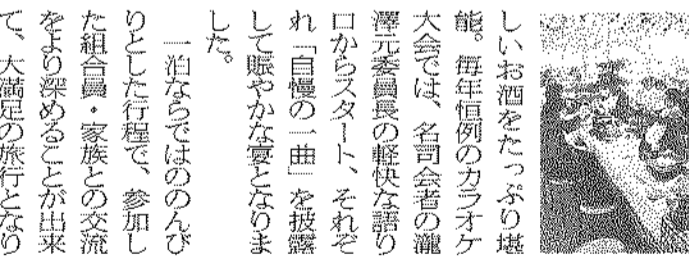 しいお酒をたっぷり堪
能。毎年恒例のカラオケ
大会では、名司会者の瀧
澤元委員長の軽快な語り
口からスタート、それぞ
れ「自慢の一曲」を披露
して賑やかな宴となりま
した。
一泊ならではののんび
りとした行程で、参加し
た組合員・家族との交流
をより深めることが出来
て、大満足の旅行となり